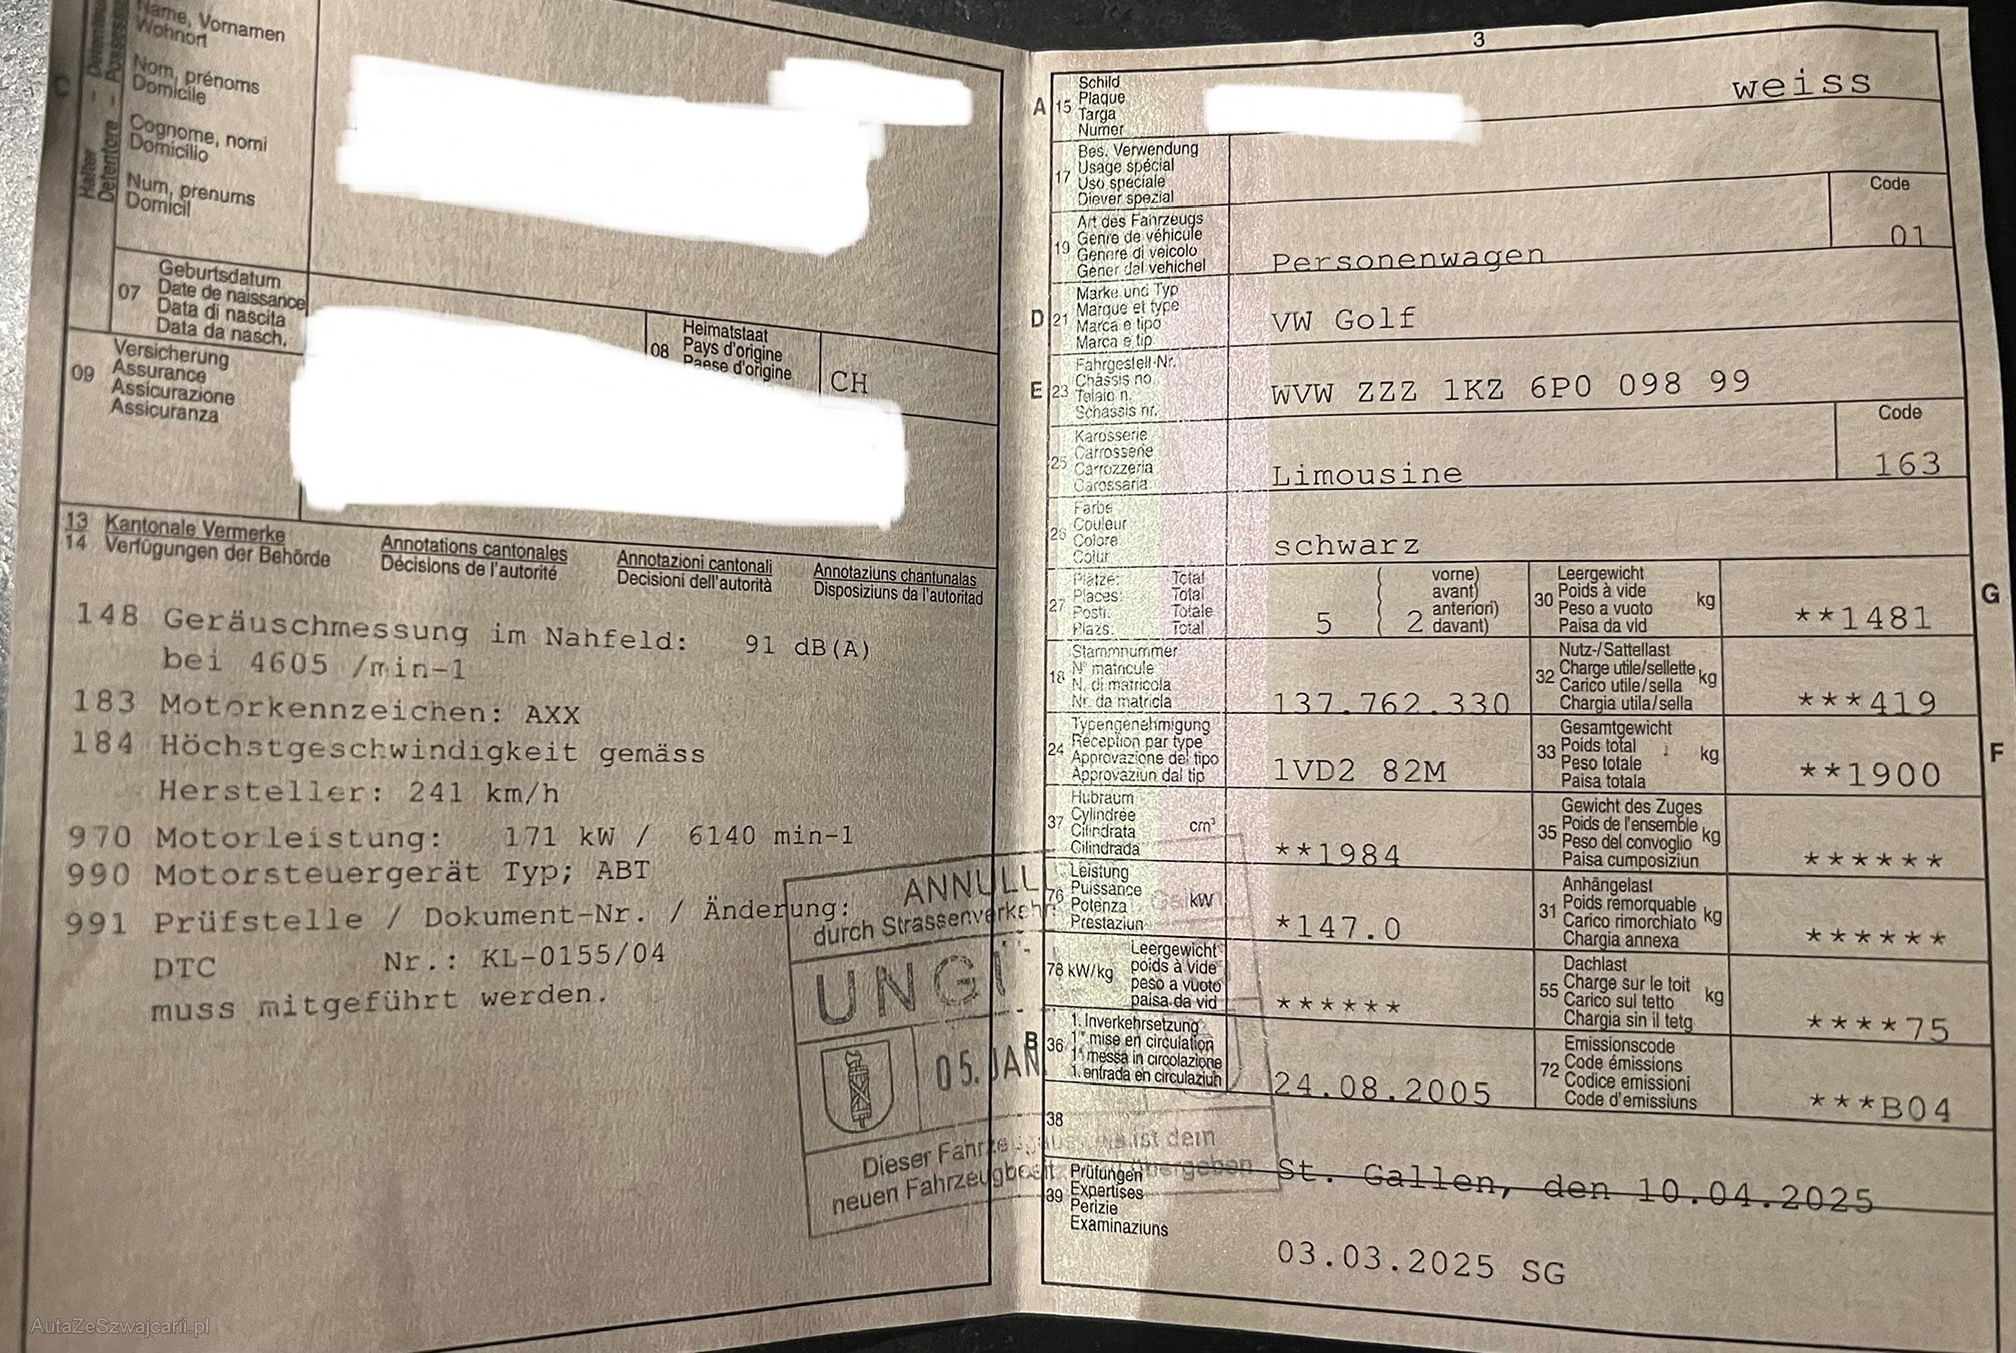 C
Halter
Detentore
Name, Vornamen
Wohnort
Nom, prénoms
Domicile
Cognome, nomi
Domicilio
Num, prenums
Domicil
07
Geburtsdatum
Date de naissance
Data di nascita
Data da nasch.
08
Heimatstaat
Pays d'origine
Paese d'origine
CH
09
Versicherung
Assurance
Assicurazione
Assicuranza
13 Kantonale Vermerke Annotations cantonales Annotazioni cantonali Annotaziuns chantunalas
14 Verfügungen der Behörde Décisions de l'autorité Decisioni dell'autorità Disposiziuns da l'autoritad
148 Geräuschmessung im Nahfeld: 91 dB(A)
bei 4605 /min-1
183 Motorkennzeichen: AXX
184 Höchstgeschwindigkeit gemäss
Hersteller: 241 km/h
970 Motorleistung: 171 kW / 6140 min-1
990 Motorsteuergerät Typ; ABT
991 Prüfstelle / Dokument-Nr. / Änderung:
DTC Nr.: KL-0155/04
muss mitgeführt werden.
ANNULL
durch Strassenverkehr
UNG
05. JAN.
Dieser ist dem
neuen übergeben
3
A 15
Schild
Plaque
Targa
Numer
weiss
17
Bes. Verwendung
Usage spécial
Uso speciale
Diever spezial
19
Art des Fahrzeugs
Genre de véhicule
Genere di veicolo
Gener dal vehichel
Personenwagen
Code
01
D 21
Marke und Typ
Marque et type
Marca e tipo
Marca e tip
VW Golf
E 23
Fahrgestell-Nr.
Châssis no
Telaio n.
Schassis nr.
WVW ZZZ 1KZ 6P0 098 99
25
Karosserie
Carrosserie
Carrozzeria
Carossaria
Limousine
Code
163
26
Farbe
Couleur
Colore
Colur
schwarz
27
Plätze: Total
Places: Total
Posti: Totale
Plazs: Total
5
2
vorne)
avant)
anteriori)
davant)
30
Leergewicht
Poids à vide
Peso a vuoto
Paisa da vid
kg
**1481
G
18
Stammnummer
N° matricule
N. di matricola
Nr. da matricla
137.762.330
32
Nutz-/Sattellast
Charge utile/sellette
Carico utile/sella
Chargia utila/sella
kg
***419
24
Typengenehmigung
Réception par type
Approvazione del tipo
Approvaziun dal tip
1VD2 82M
33
Gesamtgewicht
Poids total
Peso totale
Paisa totala
kg
**1900
F
37
Hubraum
Cylindrée
Cilindrata
Cilindrada
cm³
**1984
35
Gewicht des Zuges
Poids de l'ensemble
Peso del convoglio
Paisa cumposiziun
kg
******
76
Leistung
Puissance
Potenza
Prestaziun
kW
*147.0
31
Anhängelast
Poids remorquable
Carico rimorchiato
Chargia annexa
kg
******
78 kW/kg
Leergewicht
poids à vide
peso a vuoto
paisa da vid
******
55
Dachlast
Charge sur le toit
Carico sul tetto
Chargia sin il tetg
kg
****75
B 36
1. Inverkehrsetzung
1re mise en circulation
1a messa in circolazione
1. entrada en circulaziun
24.08.2005
72
Emissionscode
Code émissions
Codice emissioni
Code d'emissiuns
***B04
38
St. Gallen, den 10.04.2025
39
Prüfungen
Expertises
Perizie
Examinaziuns
03.03.2025 SG
AutaZeSzwajcarii.pl